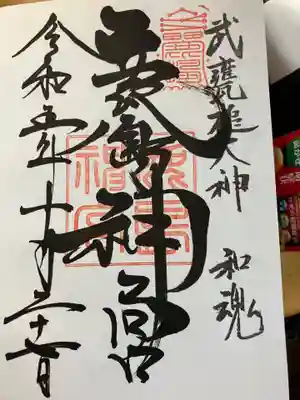 武甕槌大神 和魂
鹿島神宮
令和五年十月二十七日